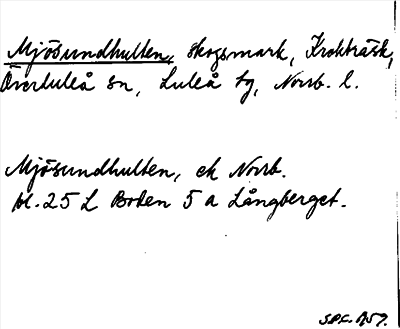 Mjösundhulten, skogsmark, Krokträsk,
Överluleå sn, Luleå tg, Norrb. l.
Mjösundhulten, ek Norrb.
bl. 25 L Boden 5 a Långberget.